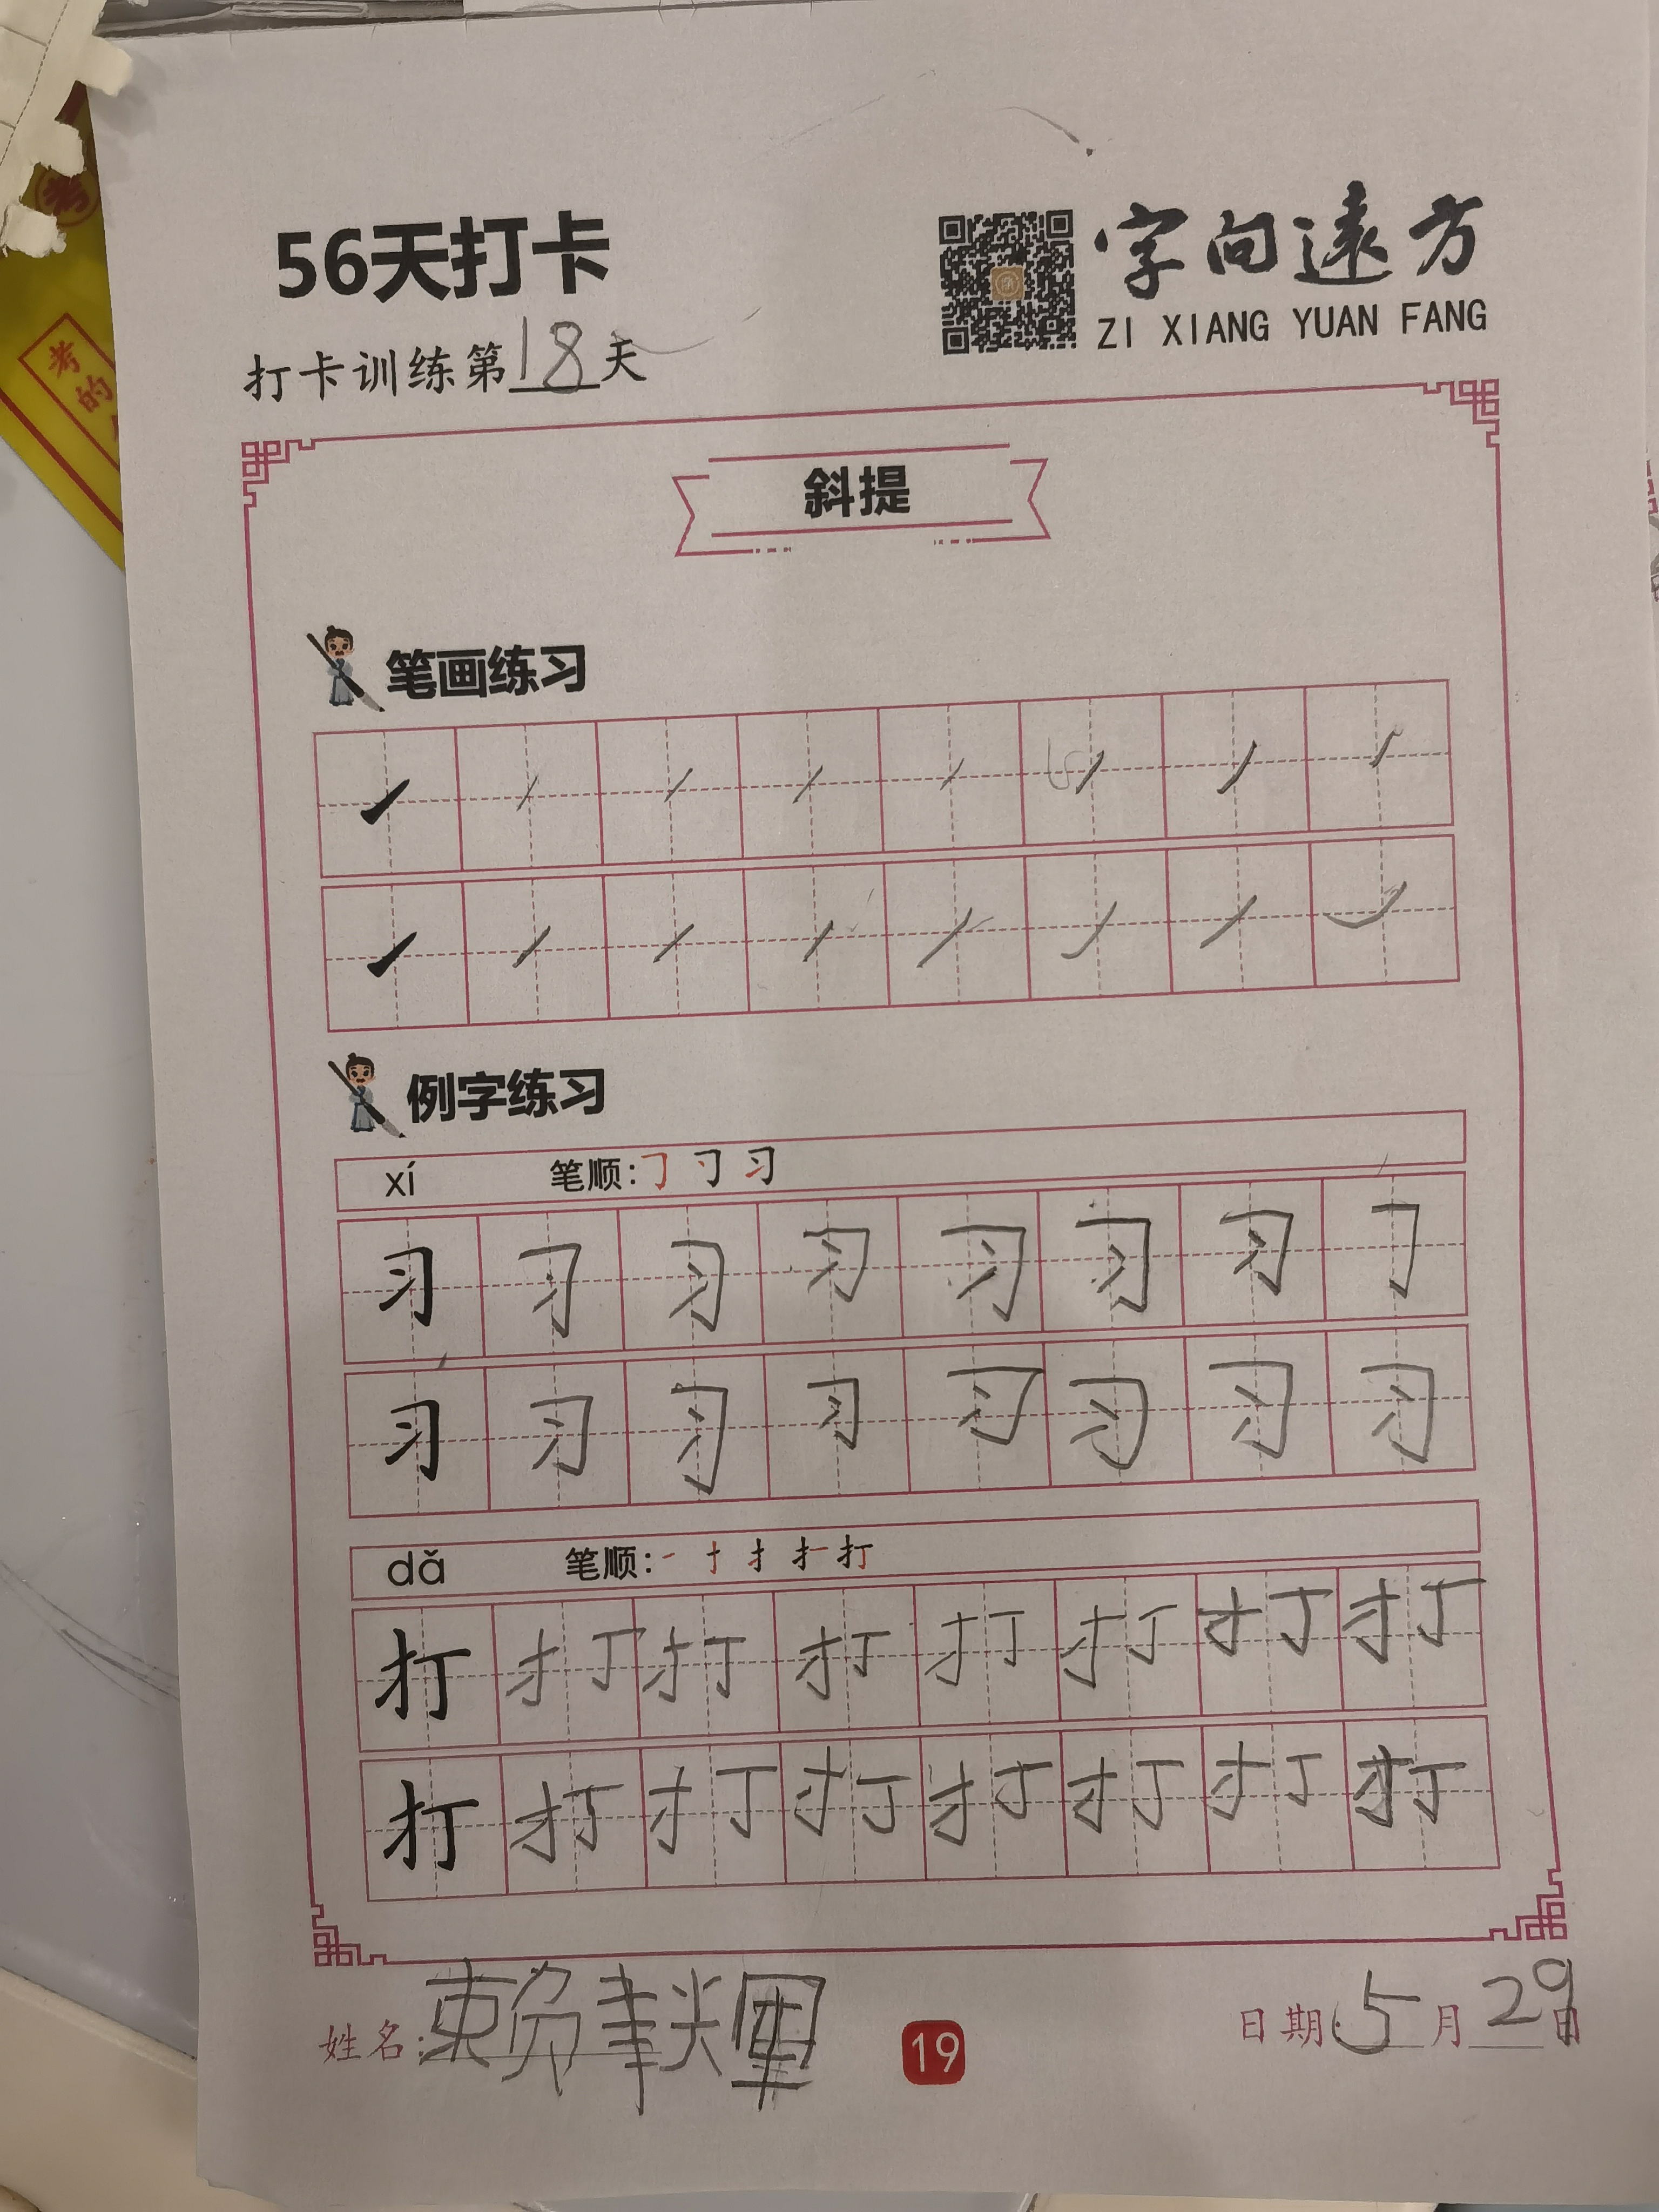 56天打卡
字向遠方
ZI XIANG YUAN FANG
打卡训练第18天
斜提
笔画练习
例字练习
xí 笔顺:㇆ 刁 习
习 习 习 习 习 习 习
习 习 习 习 习 习 习 习
dǎ 笔顺: 一 十 扌 扌一 打
打 打 打 打 打 打 打 打
打 打 打 打 打 打 打 打
姓名:赖
19
日期:5月29日
考
考
的